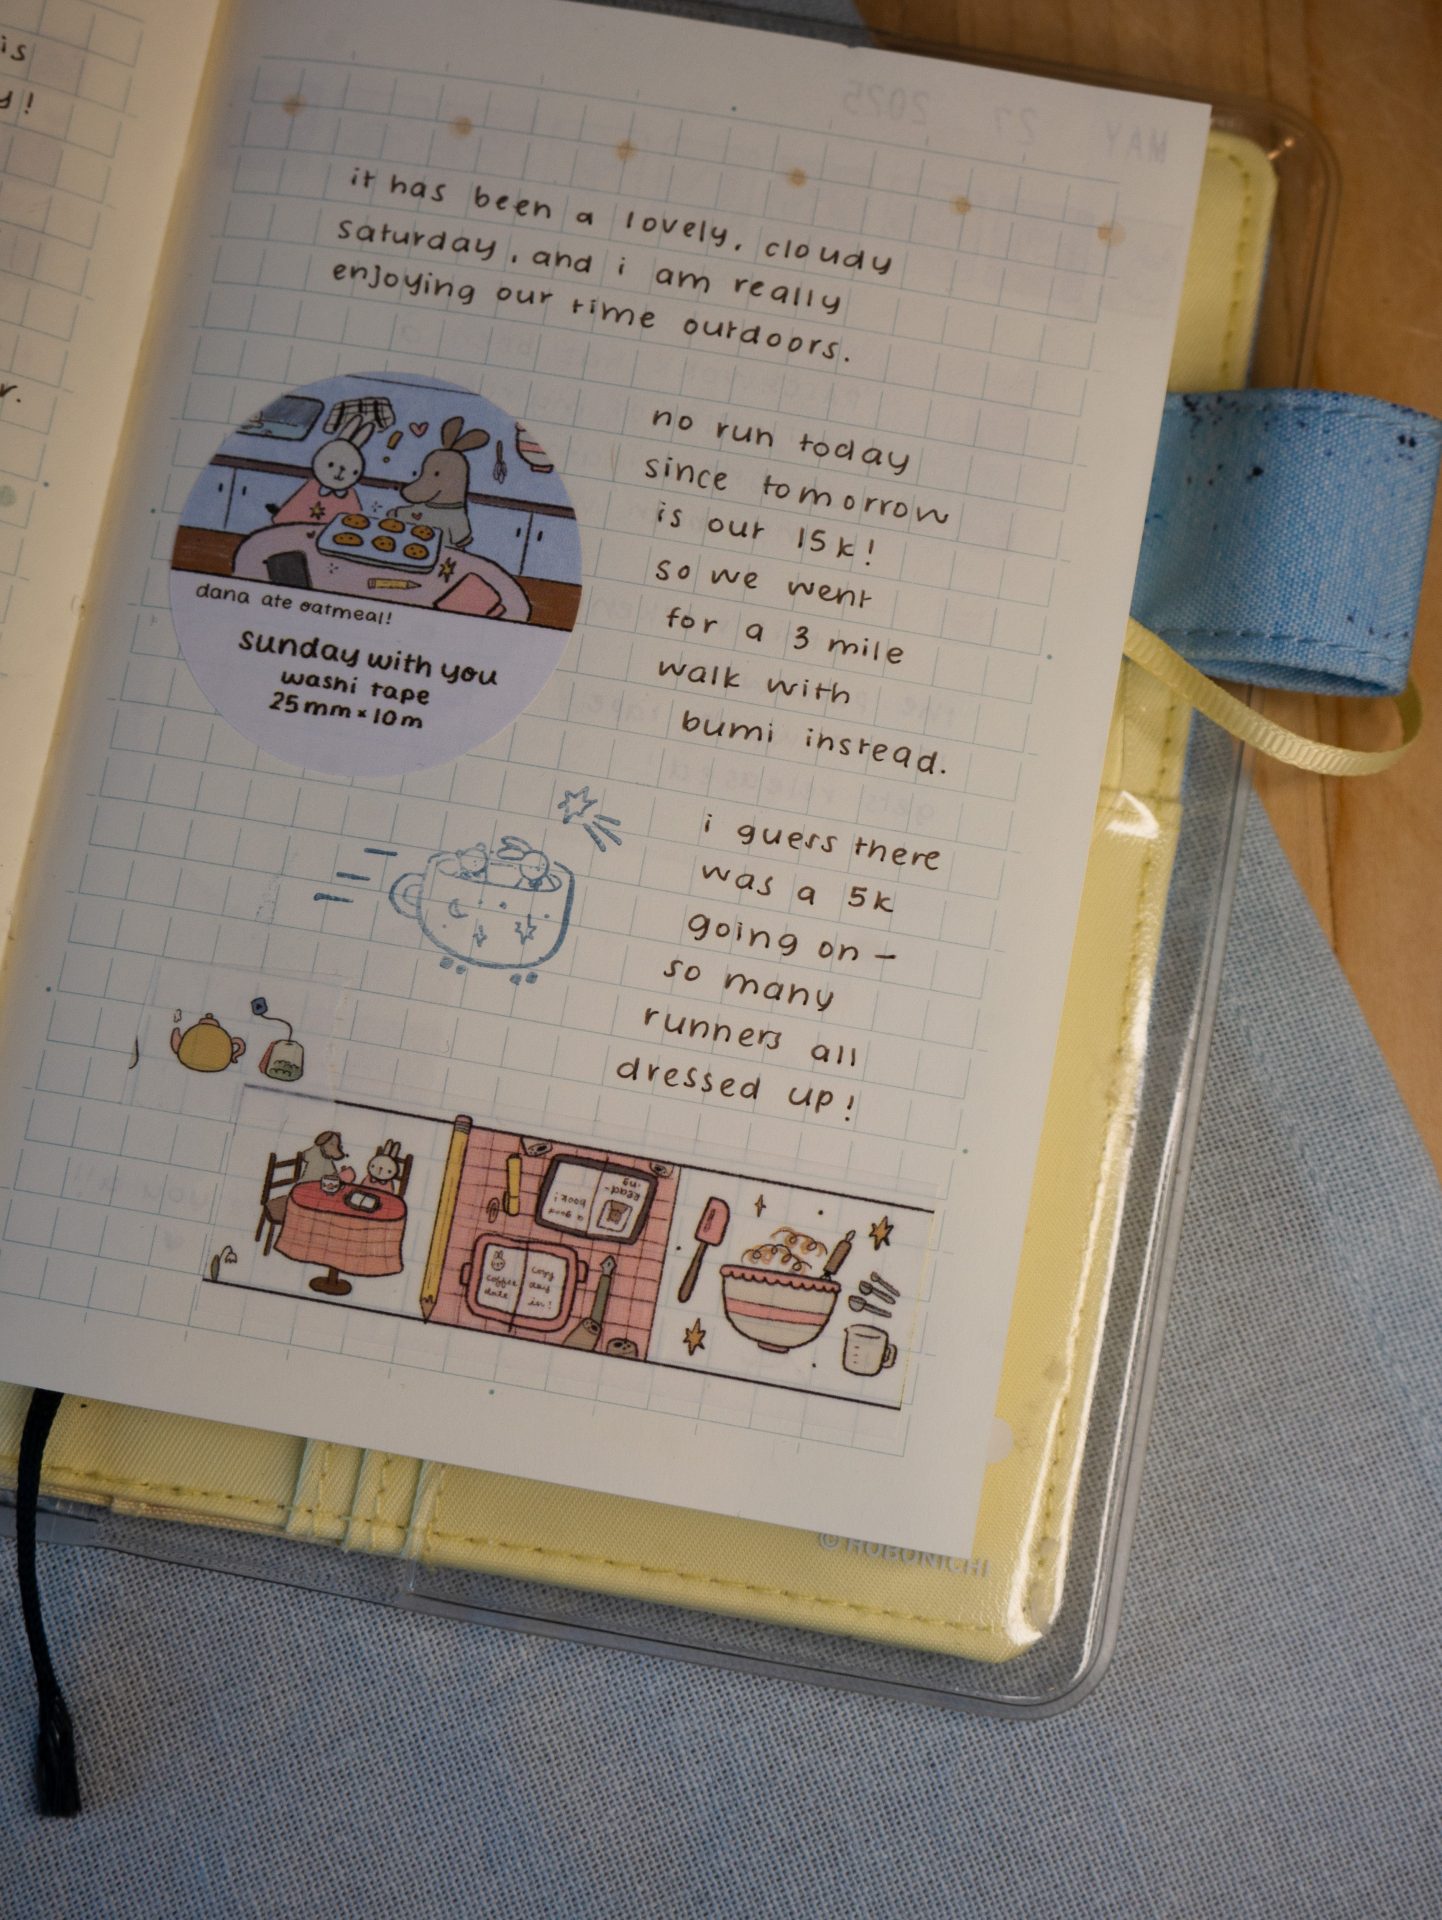 is
y!
r.
MAY 27 2025
it has been a lovely, cloudy
saturday, and i am really
enjoying our time outdoors.
no run today
since tomorrow
is our 15k!
so we went
for a 3 mile
walk with
bumi instead.
dana ate oatmeal!
sunday with you
washi tape
25mm×10m
i guess there
was a 5k
going on –
so many
runners all
dressed up!
a good
book!
Read-
ing
coffee
date
cozy
day
in!
©HOBONICHI